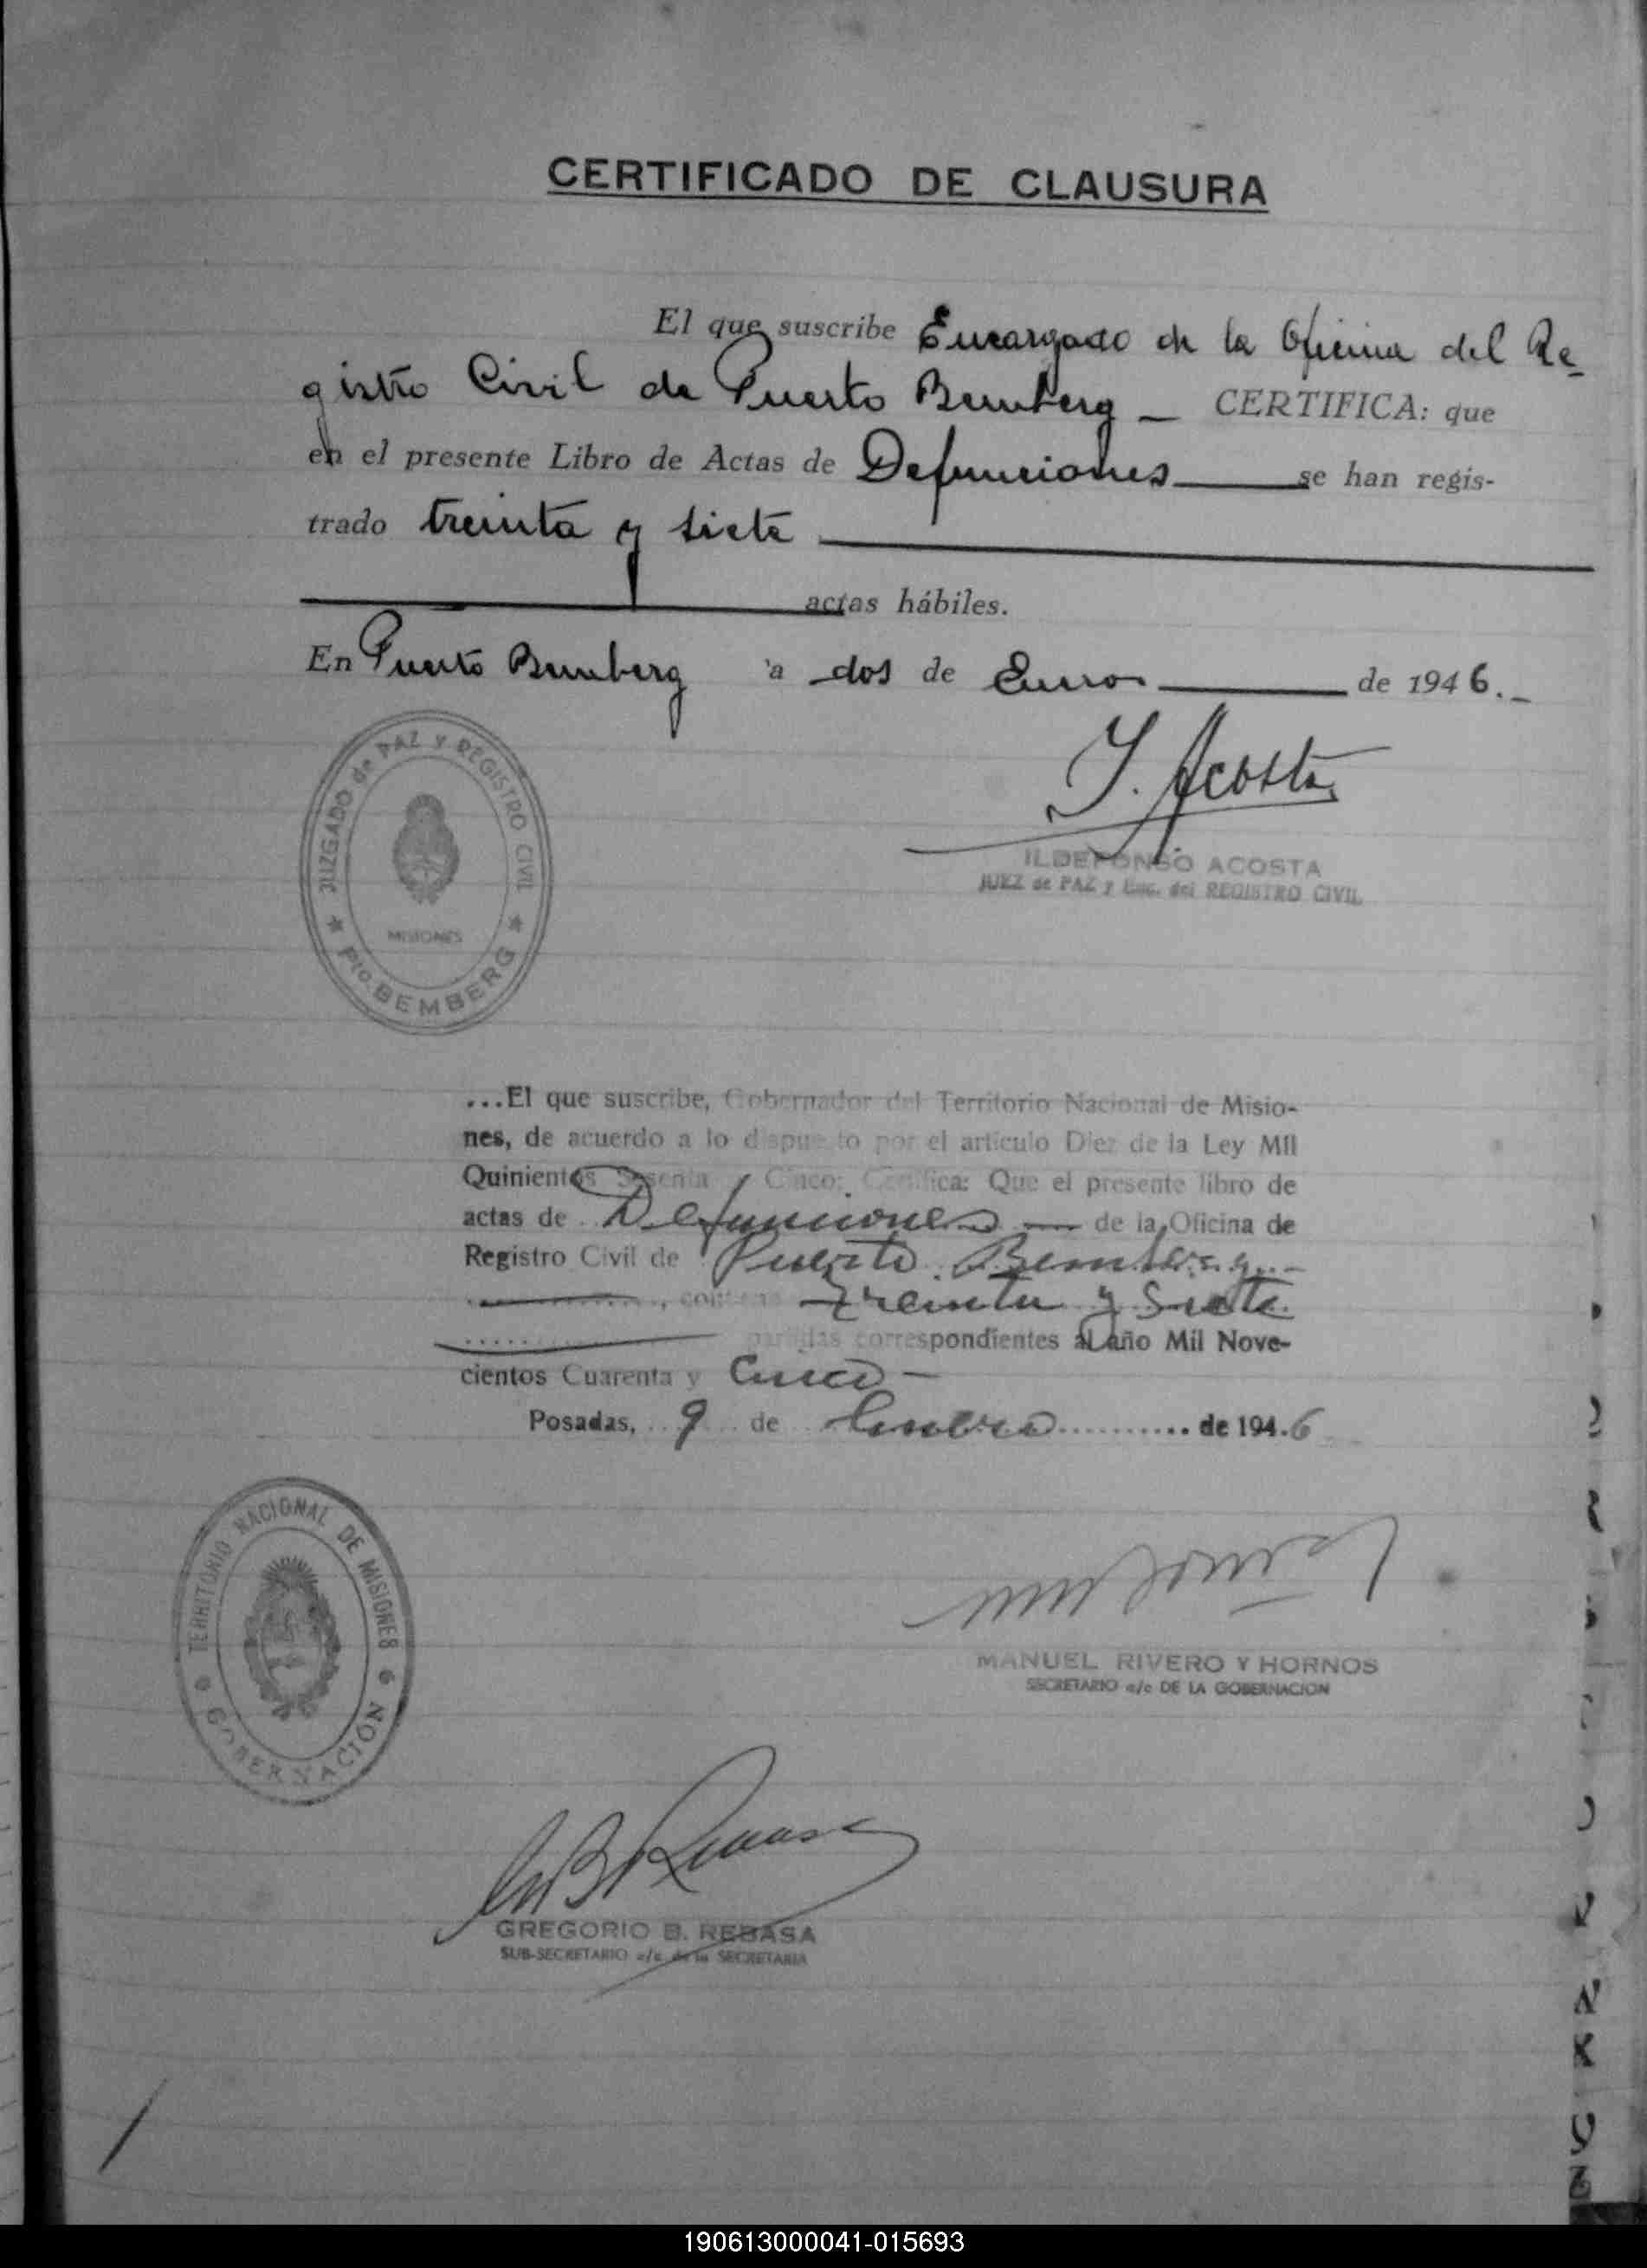 CERTIFICADO DE CLAUSURA
El que suscribe Encargado de la Oficina del Re-
gistro Civil de Puerto Bemberg — CERTIFICA: que
en el presente Libro de Actas de Defunciones se han regis-
trado treinta y siete
actas hábiles.
En Puerto Bemberg a dos de Enero de 1946.-
J. Acosta
ILDEFONSO ACOSTA
JUEZ de PAZ y Enc. del REGISTRO CIVIL
JUZGADO de PAZ Y REGISTRO CIVIL
MISIONES
Pto. BEMBERG
...El que suscribe, Gobernador del Territorio Nacional de Misio-
nes, de acuerdo a lo dispuesto por el artículo Diez de la Ley Mil
Quinientos Sesenta y Cinco: Certifica: Que el presente libro de
actas de Defunciones — de la Oficina de
Registro Civil de Puerto Bemberg.-
, contiene treinta y siete
partidas correspondientes al año Mil Nove-
cientos Cuarenta y Cinco —
Posadas, 9 de Enero de 1946
TERRITORIO NACIONAL DE MISIONES
GOBERNACIÓN
MANUEL RIVERO Y HORNOS
SECRETARIO a/c DE LA GOBERNACION
GREGORIO B. REBASA
SUB-SECRETARIO a/c de la SECRETARIA
190613000041-015693